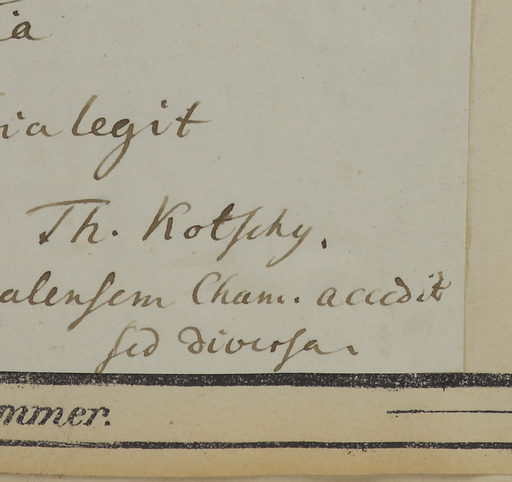 ia
ia legit
Th. Kotschy.
alensem Cham. accedit
sed diversa
mmer.